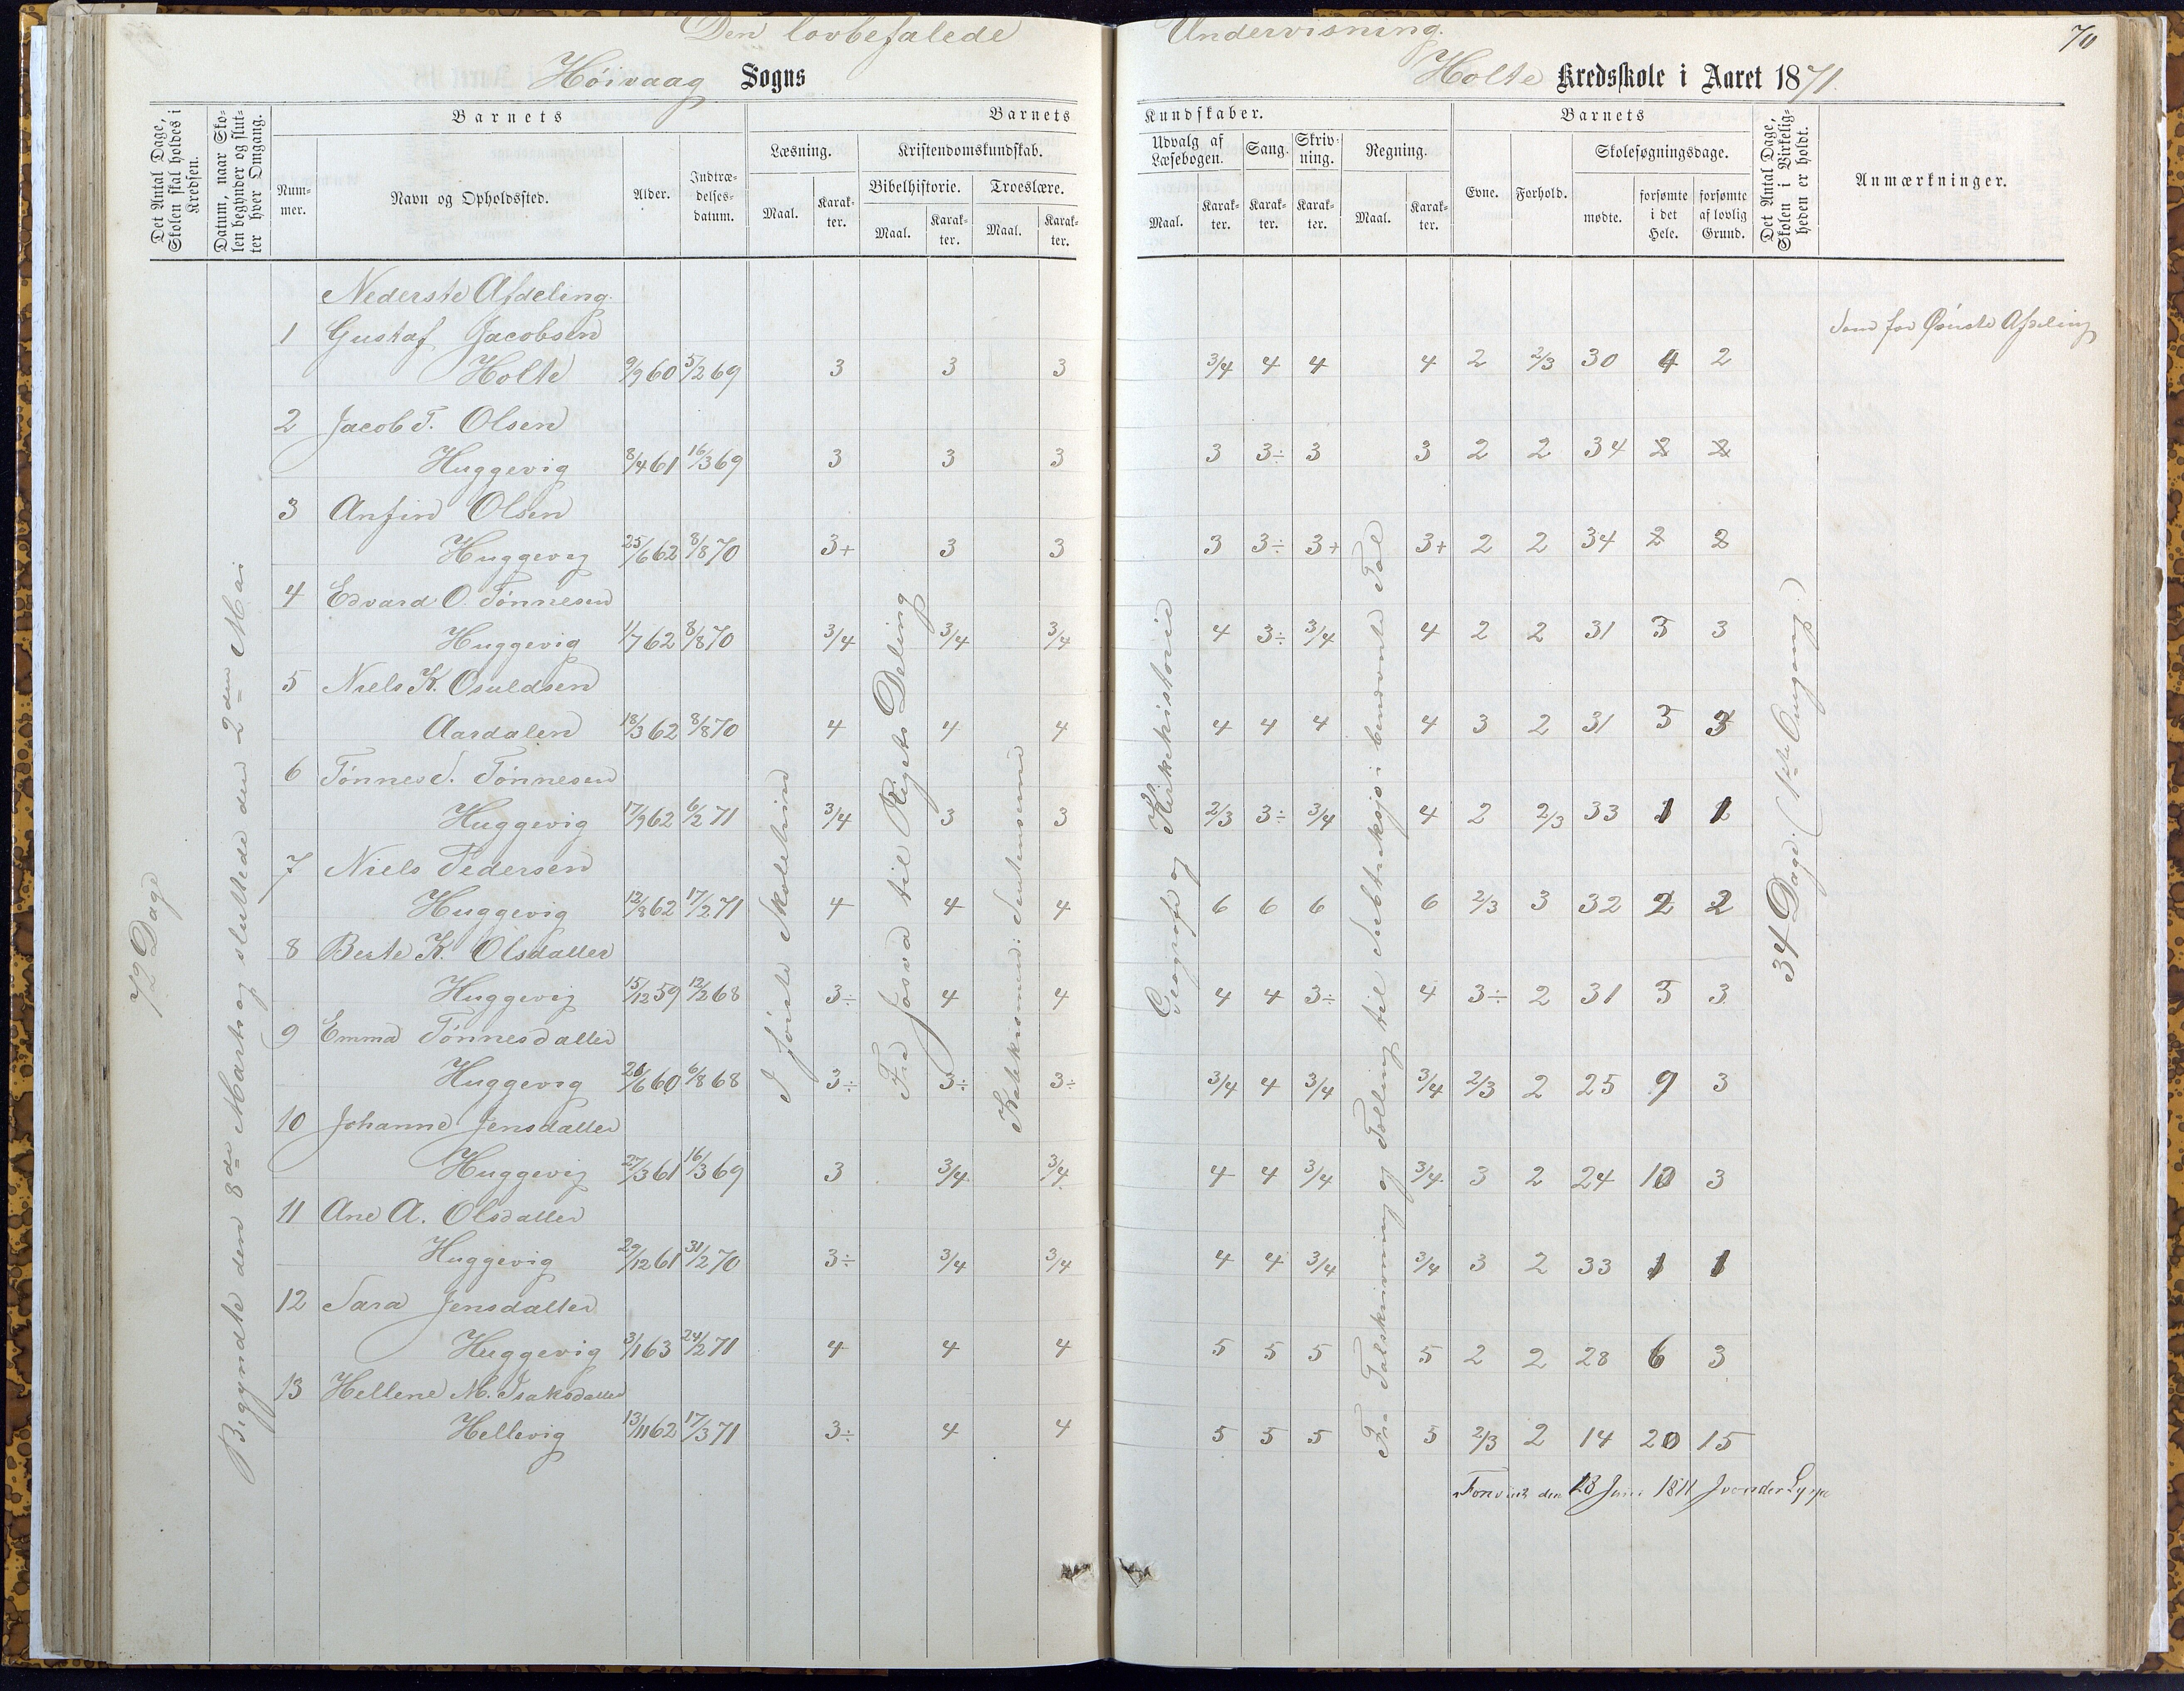 Den lovbefalede Undervisning.
70
Høivaag Sogns
Holte Kredsskole i Aaret 1871.
Det Antal Dage, Skolen skal holdes i Kredsen.
Datum, naar Skolen begynder og slutter hver Omgang.
Barnets
Nummer.
Navn og Opholdssted.
Alder.
Indtrædelsesdatum.
Barnets
Læsning.
Maal.
Karakter.
Kristendomskundskab.
Bibelhistorie.
Maal.
Karakter.
Troeslære.
Maal.
Karakter.
Kundskaber.
Udvalg af Læsebogen.
Maal.
Karakter.
Sang.
Karakter.
Skrivning.
Karakter.
Regning.
Maal.
Karakter.
Barnets
Evne.
Forhold.
Skolesøgningsdage.
mødte.
forsømte i det Hele.
forsømte af lovlig Grund.
Det Antal Dage, Skolen i Virkeligheden er holdt.
Anmærkninger.
72 Dage
Begyndte den 8de Marts og sluttede den 2den Mai
I første Skoletrin
Fra Josva til Rigets Deling
Geografi og Kirkehistorie
Fra Talskrivning og Tælling til Subtraksjo i benævnte Tal
34 Dage. (1ste Omgang.)
Som for Øverste Afdeling
Nederste Afdeling.
1 Gustaf Jacobsen
Holte 9/9 60 5/2 69 3 3 3 3/4 4 4 4 2 2/3 30 4 2
2 Jacob T. Olsen
Huggevig 8/4 61 16/3 69 3 3 3 3 3÷ 3 3 2 2 34
3 Anfin Olsen
Huggevig 25/6 62 8/8 70 3+ 3 3 3 3÷ 3+ 3+ 2 2 34
4 Edvard O. Tønnesen
Huggevig 1/7 62 8/8 70 3/4 3/4 3/4 4 3÷ 3/4 4 2 2 31 3 3
5 Niels K. Osuldsen
Aardalen 18/3 62 8/8 70 4 4 4 4 4 4 4 3 2 31 3 3
6 Tønnes S. Tønnesen
Huggevig 17/9 62 6/2 71 3/4 3 3 2/3 3÷ 3/4 4 2 2/3 33 1 1
7 Niels Pedersen
Huggevig 12/8 62 17/2 71 4 4 4 6 6 6 6 2/3 3 32 2 2
8 Berte K. Olsdatter
Huggevig 15/12 59 12/2 68 3÷ 4 4 4 4 3÷ 4 3÷ 2 31 3 3
9 Emma Tønnesdatter
Huggevig 20/6 60 6/8 68 3÷ 3÷ 3÷ 3/4 4 3/4 3/4 2/3 2 25 9 3
10 Johanne Jensdatter
Huggevig 27/3 61 16/3 69 3 3/4 3/4 4 4 3/4 3/4 3 2 24 10 3
11 Ane A. Olsdatter
Huggevig 29/12 61 31/2 70 3÷ 3/4 3/4 4 4 3/4 3/4 3 2 33 1 1
12 Sara Jensdatter
Huggevig 3/1 63 24/2 71 4 4 4 5 5 5 5 2 2 28 6 3
13 Hellene M. Isaksdatter
Hellevig 13/11 62 17/3 71 3÷ 4 4 5 5 5 5 2/3 2 14 20 15
den 28 Juni 1871 J von der Lippe